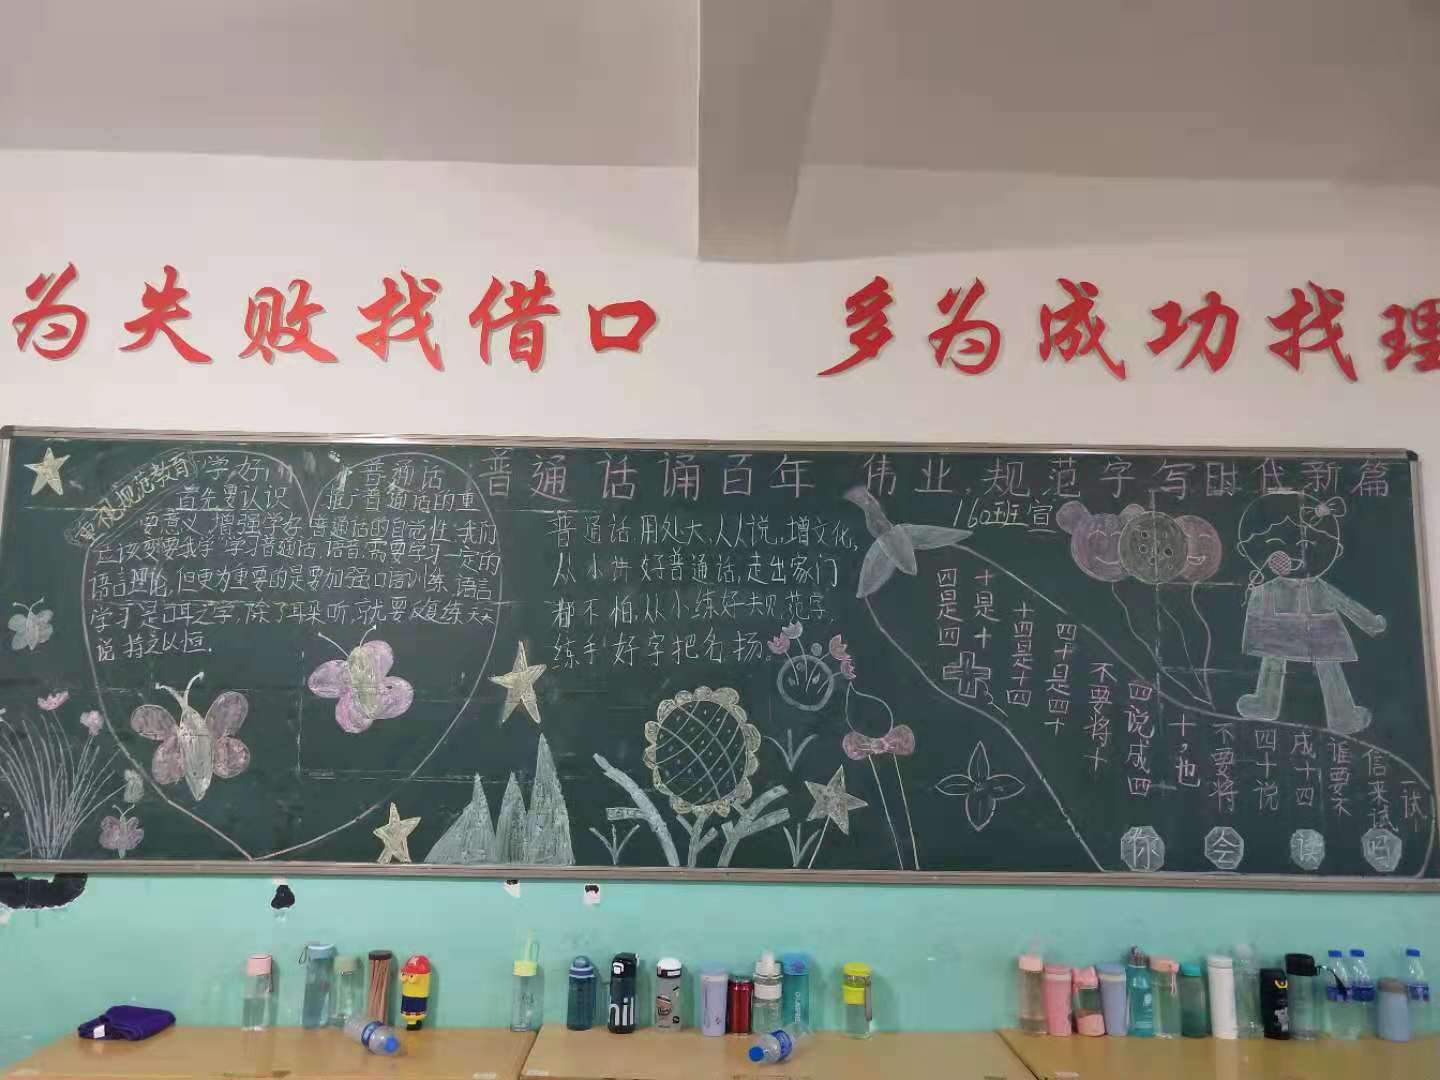 为失败找借口 多为成功找理
普通话诵百年 伟业 规范字写时代新篇
160班宣
重视规范教育
学好 普通话
首先要认识 推广普通话的重
要意义,增强学好普通话的自觉性.我们
应该变要我学 学习普通话,语音,需要学习一定的
语言理论,但更为重要的是要加强口语训练,语言
学习是口耳之学,除了耳朵听,就要反复练天天
说 持之以恒.
普通话,用处大,人人说,增文化,
从小讲好普通话,走出家门
都不怕,从小练好规范字,
练手好字把名扬。
四是四
十是十
十四是十四
四十是四十
不要将十
四说成四
十也
不要将
四十说
成十四
谁要不
信来试
一试
你会读吗